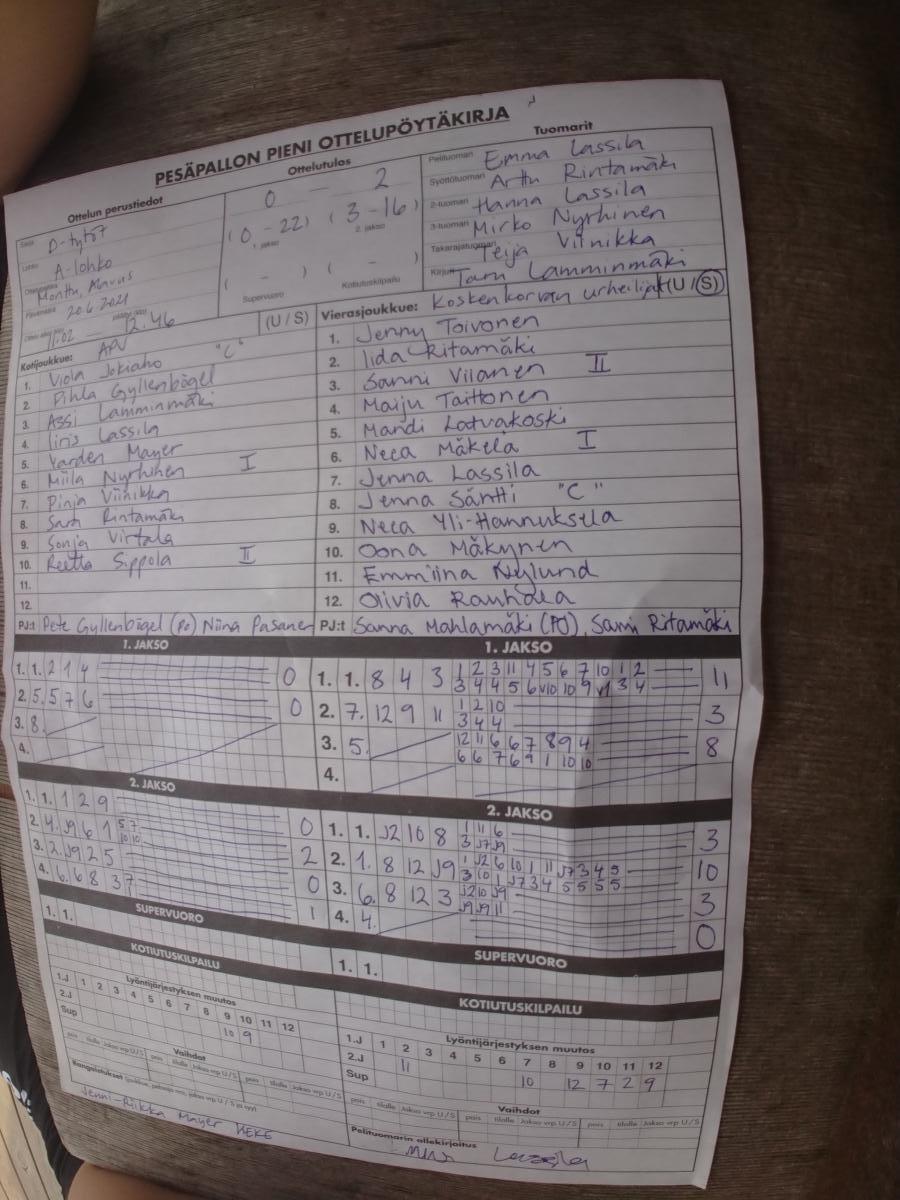 PESÄPALLON PIENI OTTELUPÖYTÄKIRJA
Ottelun perustiedot
Sarja D-tytöt
Lohko A-lohko
Alavus
Päivämäärä 20.6.2021
11.02 - 12.46
Ottelutulos
0 - 2
(0-22) (3-16)
1. jakso 2. jakso
( - ) ( - )
Supervuoro Kotiutuskilpailu
Tuomarit
Pelituomari Emma Lassila
Syöttötuomari Arttu Rintamäki
2-tuomari Hanna Lassila
3-tuomari Mirko Nyrhinen
Takarajatuomari Teija Viinikka
Kirjuri Taru Lamminmäki
Kotijoukkue: APV (U / S)
1. Viola Jokiaho "C"
2. Pihla Gyllenbögel
3. Assi Lamminmäki
4. Iiris Lassila
5. Yarden Mayer
6. Miila Nyrhinen I
7. Pinja Viinikka
8. Sara Rintamäki
9. Sonja Virtala
10. Reetta Sippola II
11.
12.
PJ:t Pete Gyllenbögel (Po) Niina Pasanen
Vierasjoukkue: Koskenkorvan urheilijat (U / S)
1. Jenny Toivonen
2. Iida Ritamäki
3. Sanni Vilanen II
4. Maiju Taittonen
5. Mandi Latvakoski
6. Neea Mäkelä I
7. Jenna Lassila
8. Jenna Säntti "C"
9. Neea Yli-Hannuksela
10. Oona Mäkynen
11. Emmiina Nylund
12. Olivia Rauhala
PJ:t Sanna Mahlamäki (PO), Sami Ritamäki
1. JAKSO
1. 1. 2 1 4 0
2. 5. 5 7 6 0
3. 8.
4.
1. JAKSO
1. 1. 8 4 3 1 2 3 11 4 5 6 7 10 1 2 11
3 4 4 5 6 v10 10 9 v1 3 4
2. 7. 12 9 11 1 2 10 3
3 4 4
3. 5. 12 11 6 6 7 8 9 4 8
6 6 7 6 9 1 10 10
4.
2. JAKSO
1. 1. 1 2 9 0
2. 4. J9 6 1 5 7 2
10 10
3. 2. J9 2 5 0
4. 6. 6 8 3 7 1
2. JAKSO
1. 1. J2 10 8 1 11 6 3
3 J7 J9
2. 1. 8 12 J9 1 J2 6 10 1 11 J7 3 4 5 10
3 10 1 J7 3 4 5 5 5 5
3. 6. 8 12 3 J2 10 J9 3
J9 J9 11
4. 4. 0
SUPERVUORO
1. 1.
SUPERVUORO
1. 1.
KOTIUTUSKILPAILU
KOTIUTUSKILPAILU
Lyöntijärjestyksen muutos
1.J 1 2 3 4 5 6 7 8 9 10 11 12
2.J 10 9
Sup
Vaihdot
Lyöntijärjestyksen muutos
1.J 1 2 3 4 5 6 7 8 9 10 11 12
2.J 11 10 12 7 2 9
Sup
Vaihdot
pois tilalle Jakso vrp U / S pois tilalle Jakso vrp U / S pois tilalle Jakso vrp U / S
Rangaistukset
Jenni-Riikka Mayer
Pelituomarin allekirjoitus